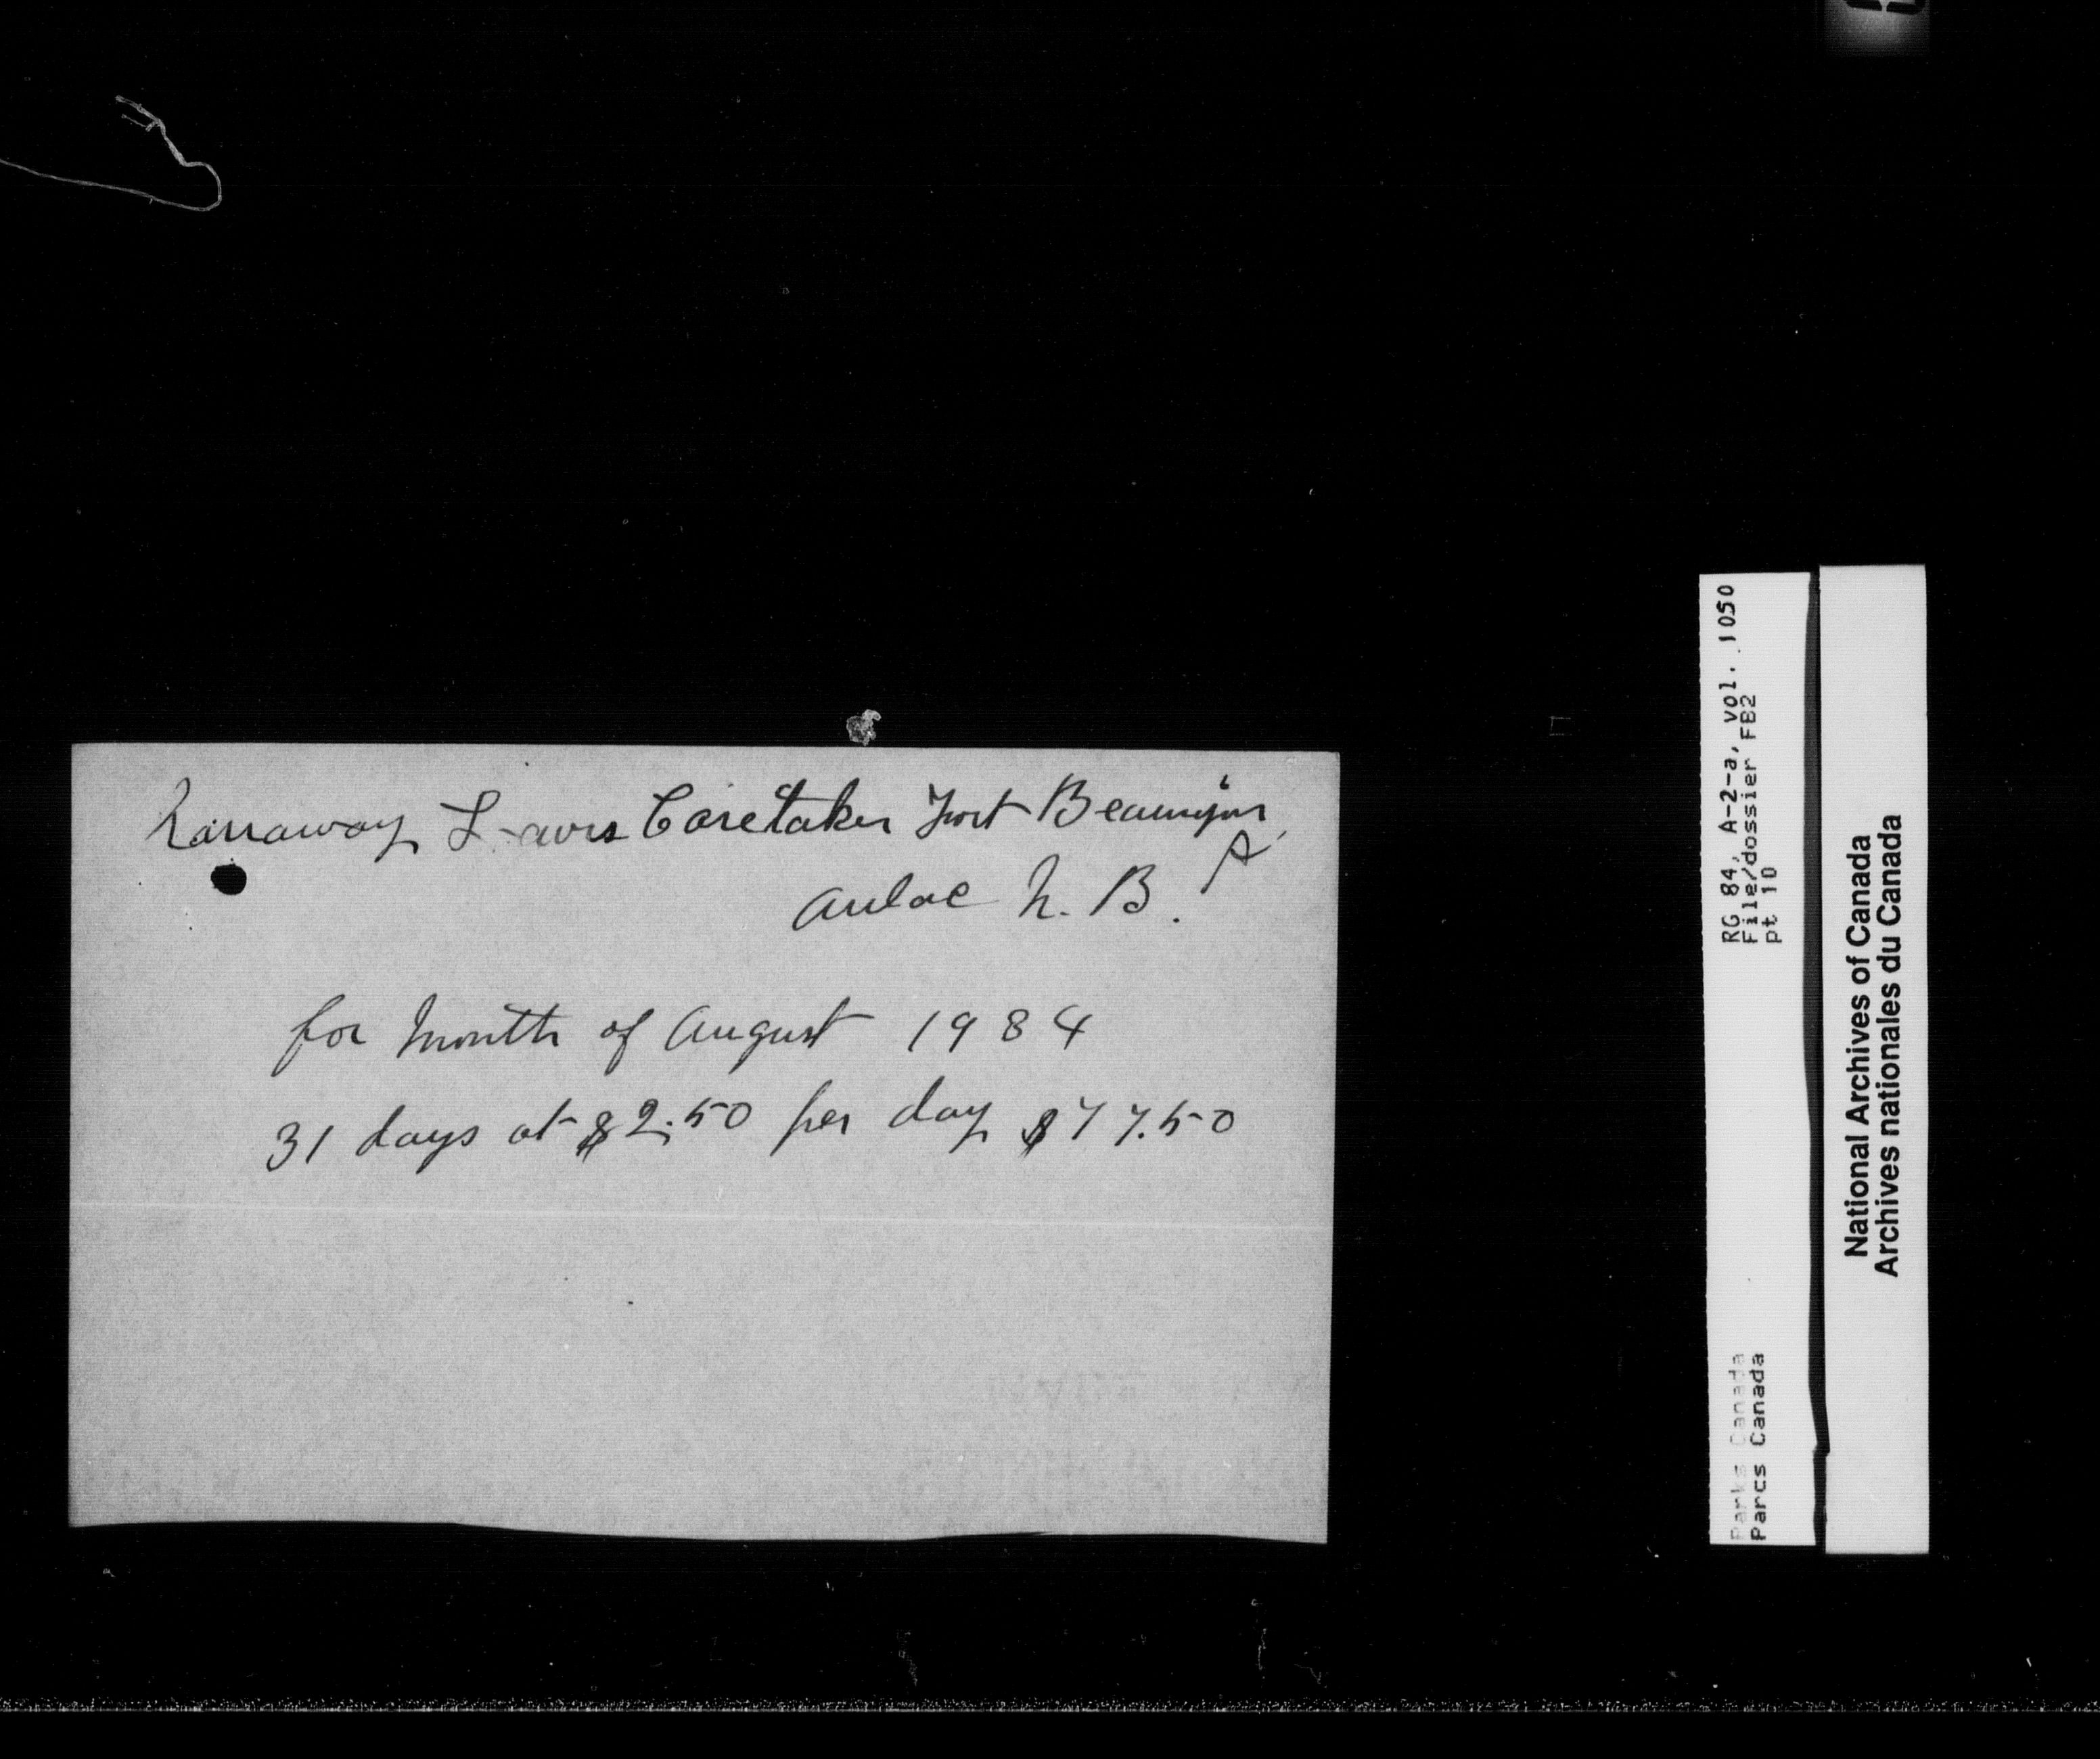 Lewis Caretaker Fort Beausejour
A
Aulac N. B.
for Month of August 1984
31 days at $2.50 per day $77.50
RG 84, A-2-a, vol. 1050
File/dossier FB2
pt 10
Parks Canada
Parcs Canada
National Archives of Canada
Archives nationales du Canada